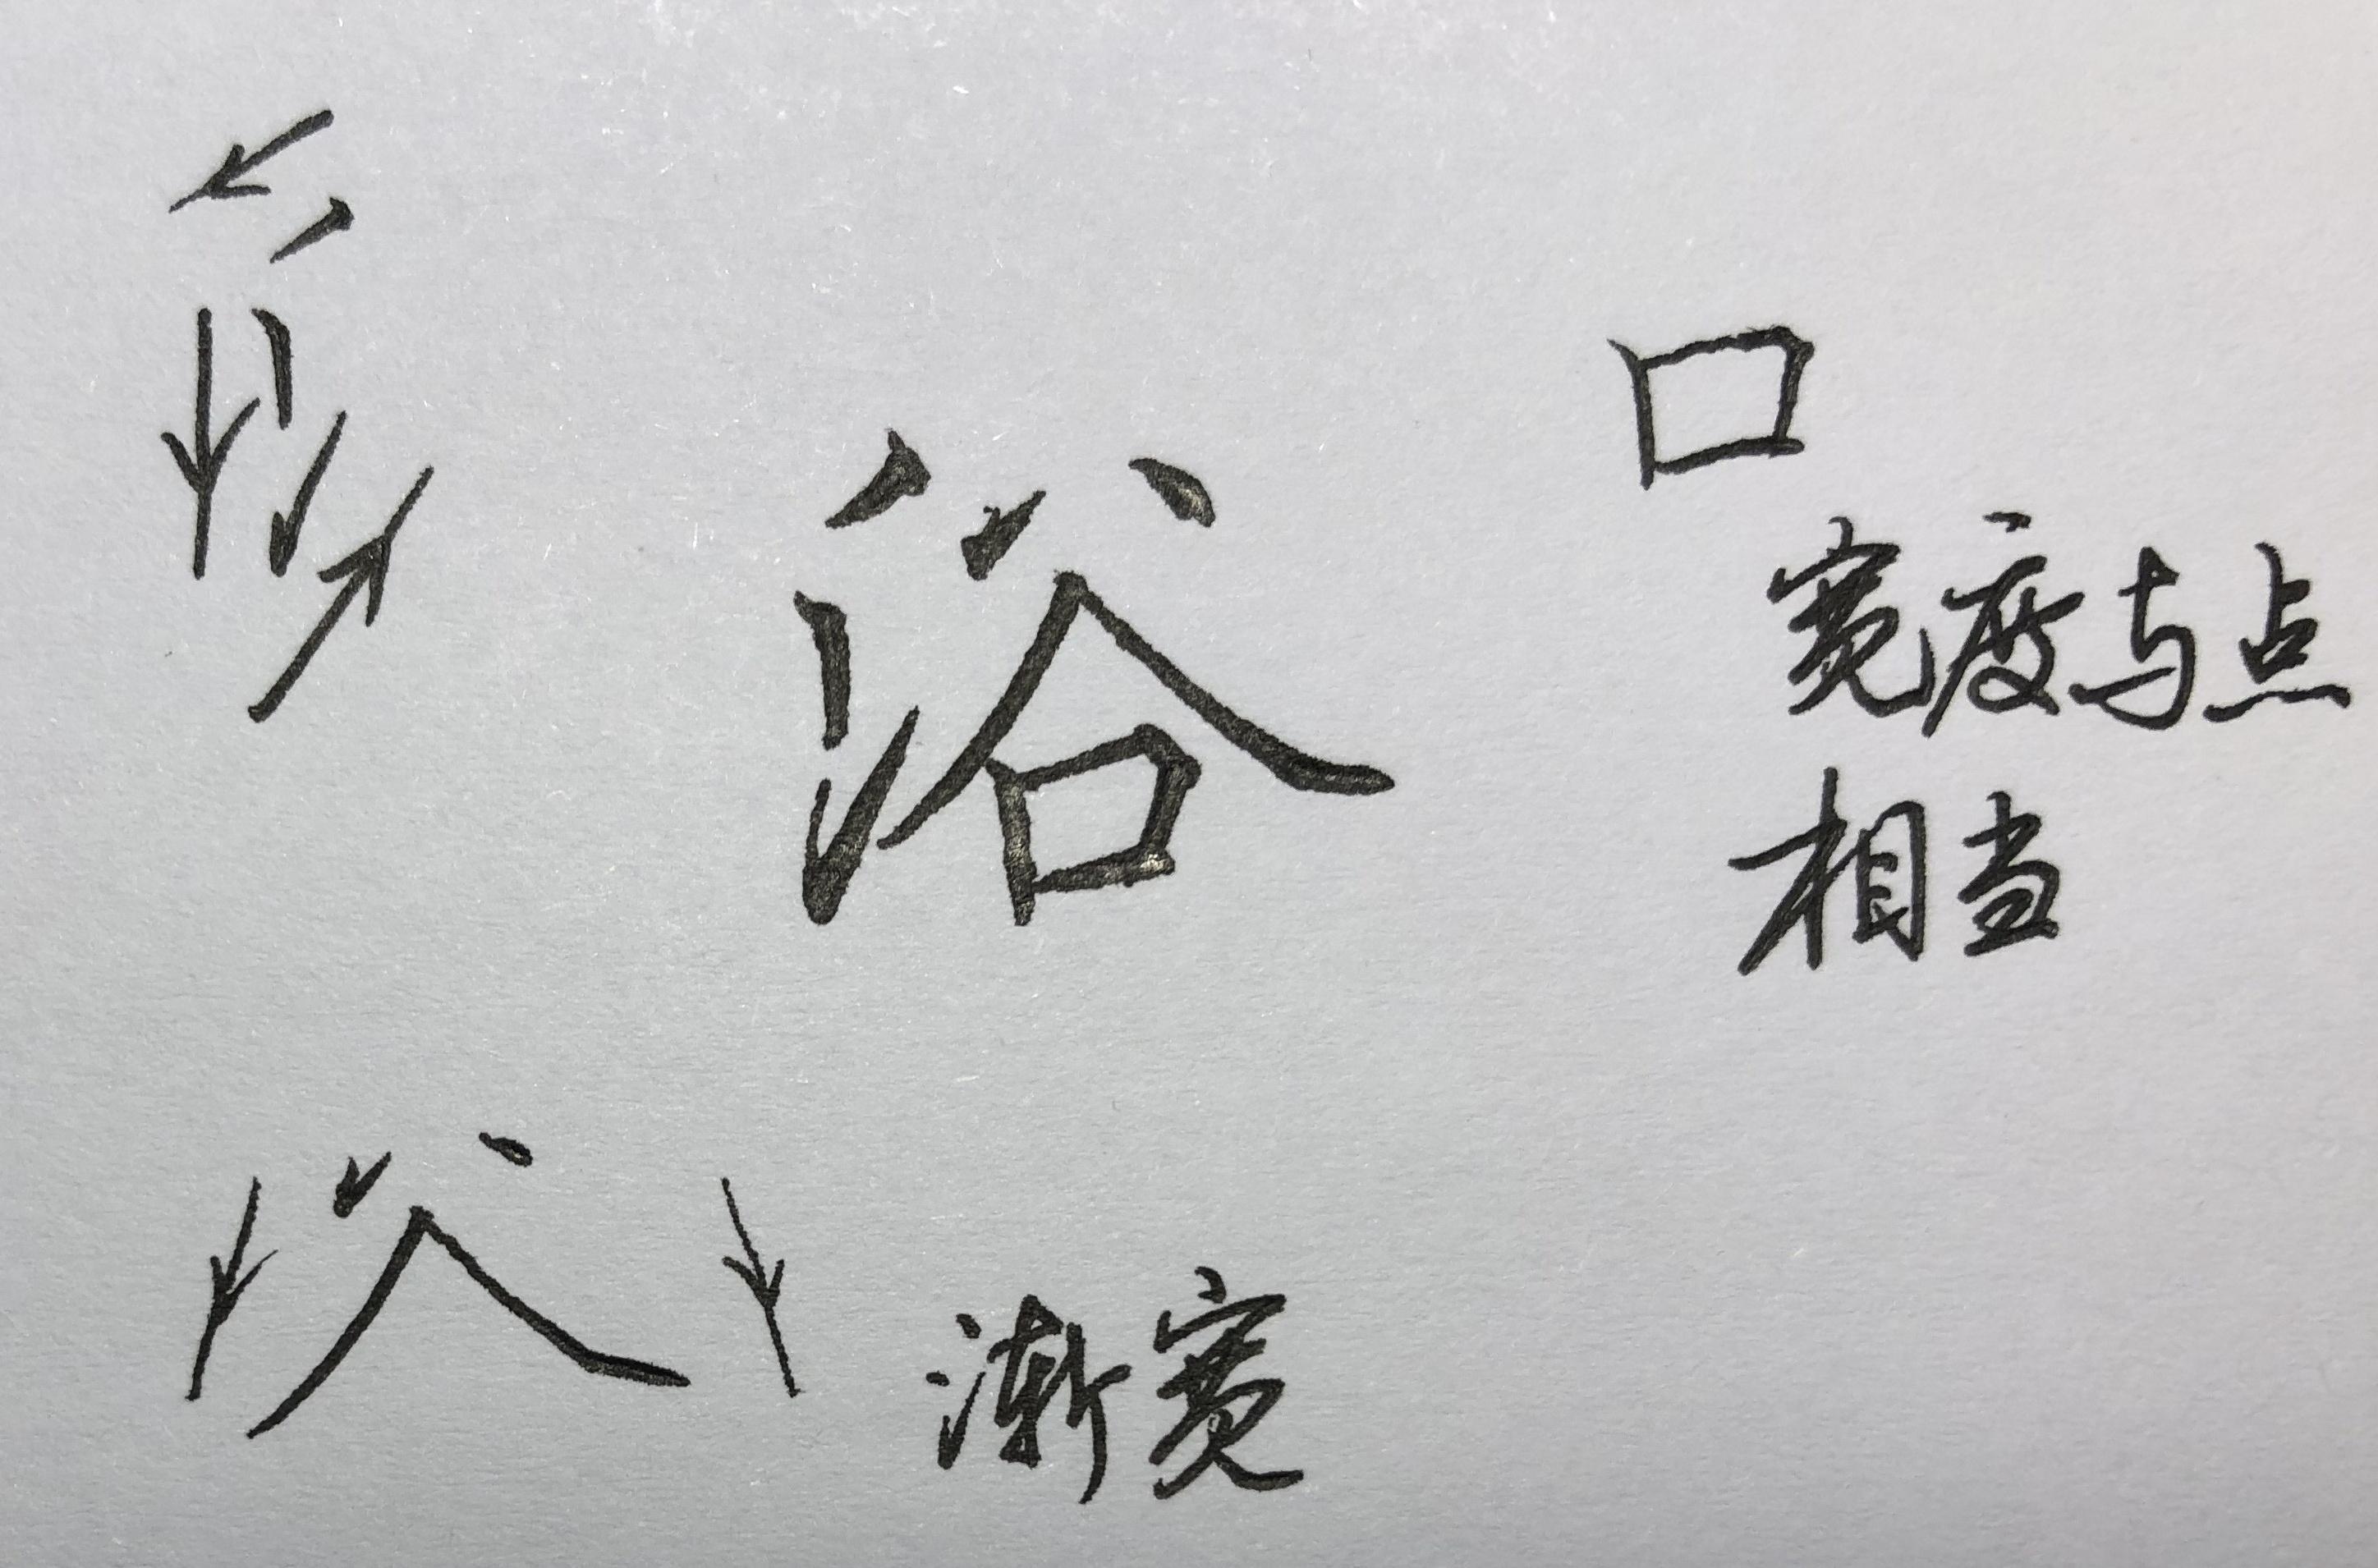 浴
口
宽度与点
相当
渐宽